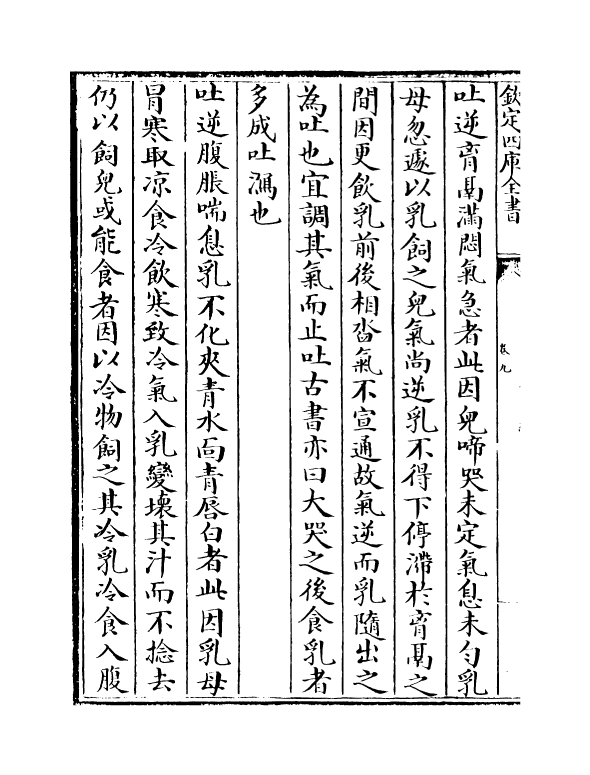 欽定四庫全書
卷九
吐逆胷鬲滿悶氣急者此因兒啼哭未定氣息未匀乳
母忽遽以乳飼之兒氣尚逆乳不得下停滯於胷鬲之
間因更飲乳前後相沓氣不宣通故氣逆而乳隨出之
為吐也宜調其氣而止吐古書亦曰大哭之後食乳者
多成吐瀉也
吐逆腹脹喘息乳不化夾青水面青唇白者此因乳母
冒寒取凉食冷飲寒致冷氣入乳變壞其汁而不捻去
仍以飼兒或能食者因以冷物飼之其冷乳冷食入腹